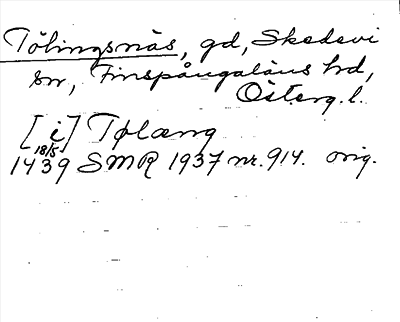 Tölingsnäs, gd, Skedevi
sn, Finspångaläns hd,
Österg. l.
[i] Tølæng
18/5
1439 SMR 1937 nr. 914. orig.